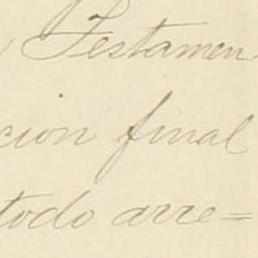 Testamen
cion final
todo arre=